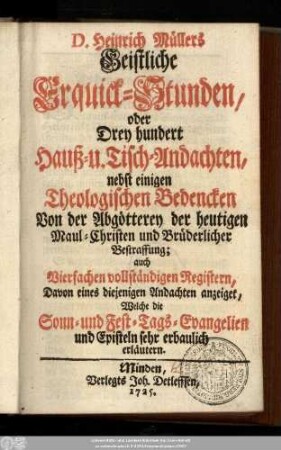 D. Heinrich Müllers
Geistliche
Erquick-Stunden,
oder
Drey hundert
Hauß-u. Tisch-Andachten,
nebst einigen
Theologischen Bedencken
Von der Abgötterey der heutigen
Maul-Christen und Brüderlicher
Bestraffung;
auch
Vierfachen vollständigen Registern,
Davon eines diejenigen Andachten anzeiget,
Welche die
Sonn- und Fest-Tags-Evangelien
und Episteln sehr erbaulich
erläutern.
Minden,
Verlegts Joh. Detleffsen,
1725.